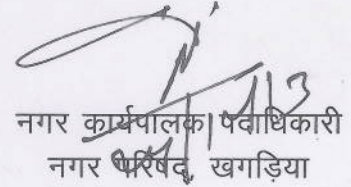 नगर कार्यपालक पदाधिकारी
नगर परिषद्, खगड़िया